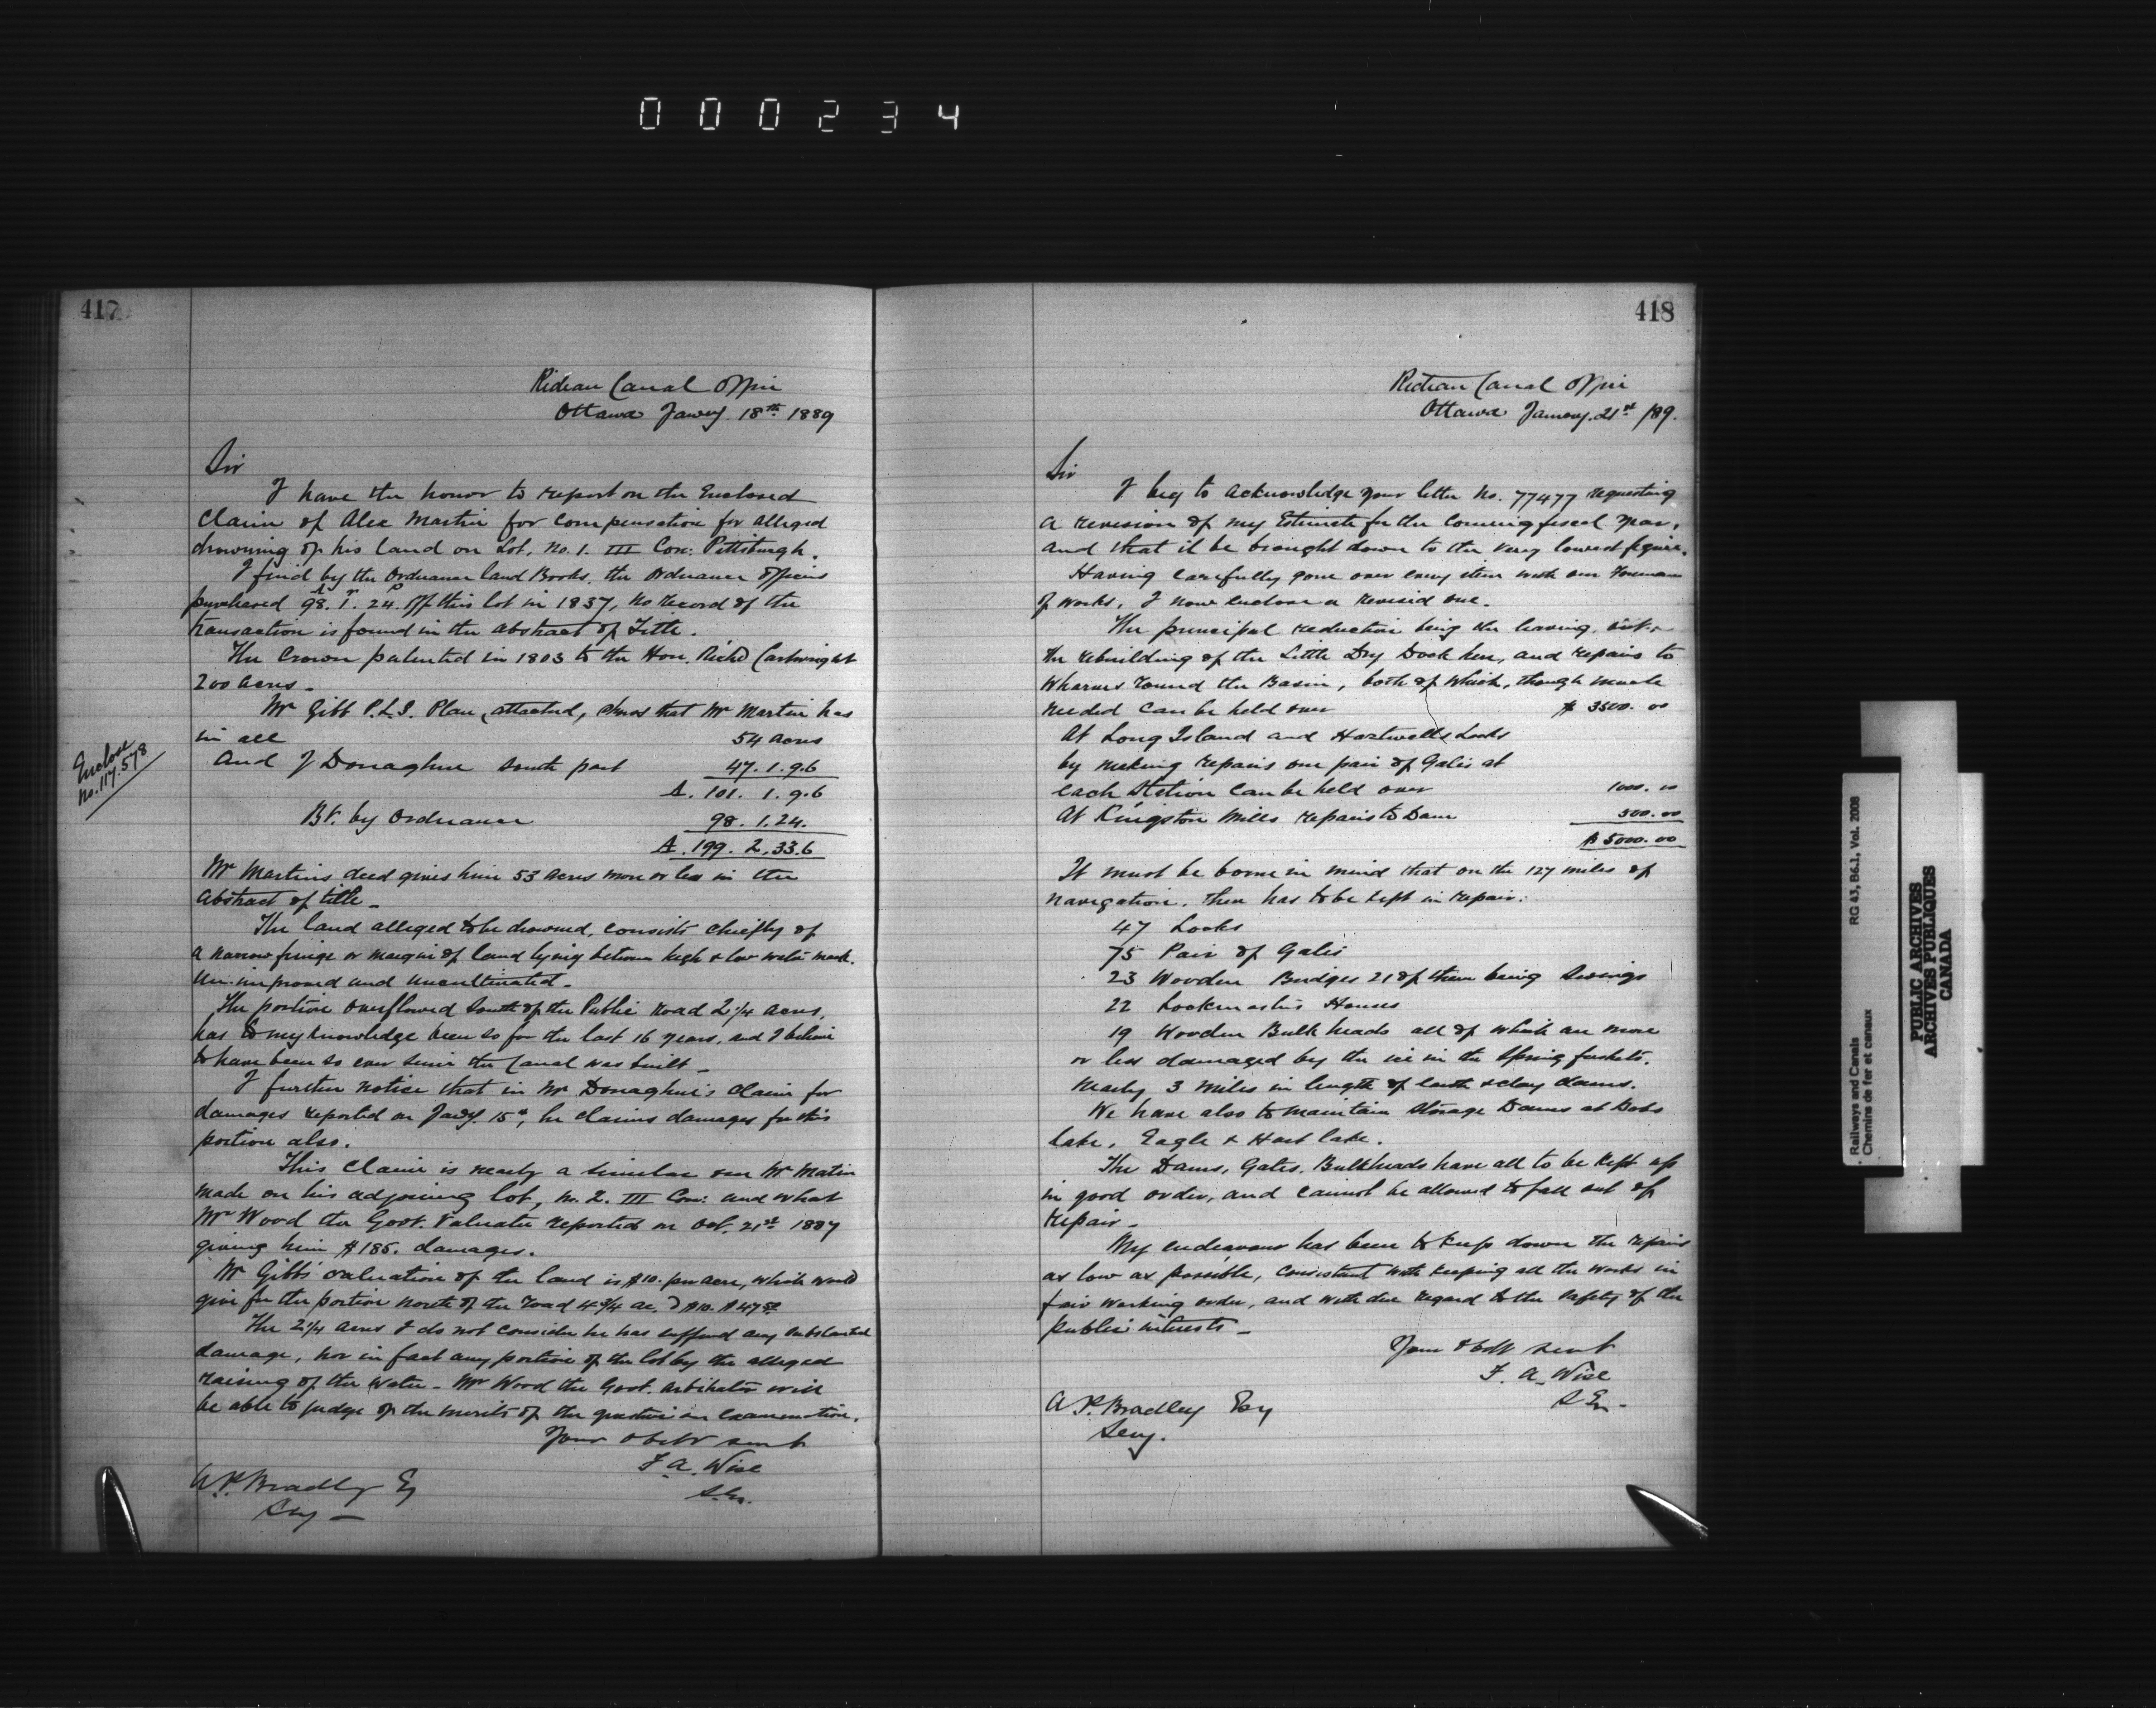 000234
417
Rideau Canal Office
Ottawa Jany. 18th 1889
Sir
I have the honor to report on the Enclosed
Claim of Alex Martin for Compensation for alleged
drowning of his land on Lot. No. 1. III Con: Pittsburgh.
I find by the Ordnance land Books. the Ordnance officers
purchased 98.A 1.r 24.P off this lot in 1837, no record of the
transaction is found in the abstract of Title.
The Crown patented in 1803 to the Hon. Richd Cartwright
200 acres_
Mr Gibb P.L.S. Plan, attached, shows that Mr Martin has
in all 54 acres
And J Donaghue south part 47. 1. 9.6
A. 101. 1. 9.6
Bt. by Ordnance 98. 1. 24.
A. 199. 2. 33.6
Enclose
No. 117.578
Mr Martins deed gives him 53 acres more or less in the
abstract of title_
The land alleged to be drowned, consists chiefly of
a narrow fringe or margin of land lying between high & low water mark.
Un-improved and uncultivated_
The portion overflowed South of the Public Road 2 1/4 acres,
has to my knowledge been so for the last 16 years, and I believe
to have been so ever since the Canal was built_
I further notice that in Mr Donaghue's Claim for
damages reported on Jany. 15th, he claims damages for this
portion also.
This Claim is nearly a similar one Mr Matin
made on his adjoining lot, No. 2. III Con: and what
Mr Wood the Govt. Valuator reported on Oct. 21st 1887
giving him $185. damages.
Mr Gibbs' valuation of the land is $10. per acre, which would
give for the portion North of the road 4 3/4 ac. @ $10. $47 50
The 2 1/4 acres I do not consider he has suffered any substantial
damage, nor in fact any portion of the lot by the alleged
raising of the water_ Mr Wood the Govt. Arbitrator will
be able to judge of the merits of the question on examination.
Your obedt servt
F. A. Wise
S. En.
A. P. Bradley Eq
Secy_
418
Rideau Canal Office
Ottawa January. 21st /89.
Sir
I beg to acknowledge your letter No. 77477 requesting
a revision of my Estimate for the Coming fiscal year,
and that it be brought down to the very lowest figure.
Having carefully gone over every item with our Foreman
of works, I now enclose a revised one.
The principal reduction being the leaving out
the rebuilding of the Little Dry Dock here, and repairs to
Wharves round the Basin, both of which, though much
needed can be held over $ 3500. 00
At Long Island and Hartwells Locks
by making repairs one pair of Gates at
each Station can be held over 1000. 00
At Kingston Mills repairs to Dam 500. 00
$ 5000. 00
It must be borne in mind that on the 127 miles of
navigation, there has to be kept in repair:
47 Locks
75 Pair of Gates
23 Wooden Bridges 21 of them being Swings
22 Lockmasters Houses
19 Wooden Bulk heads all of which are more
or less damaged by the ice in the Spring freshets.
Nearly 3 Miles in length of earth & clay dams.
We have also to maintain Storage Dams at Bobs
Lake, Eagle & Hart lake.
The Dams, Gates, Bulkheads have all to be kept up
in good order, and cannot be allowed to fall out of
repair_
My endeavour has been to keep down the repairs
as low as possible, consistent with keeping all the works in
fair working order, and with due regard to the safety of the
public interests_
Your Obdt servt
F. A. Wise
S En.
A P. Bradley Esq
Secy.
Railways and Canals RG 43, B6.1, Vol. 2008
Chemins de fer et canaux
PUBLIC ARCHIVES
ARCHIVES PUBLIQUES
CANADA